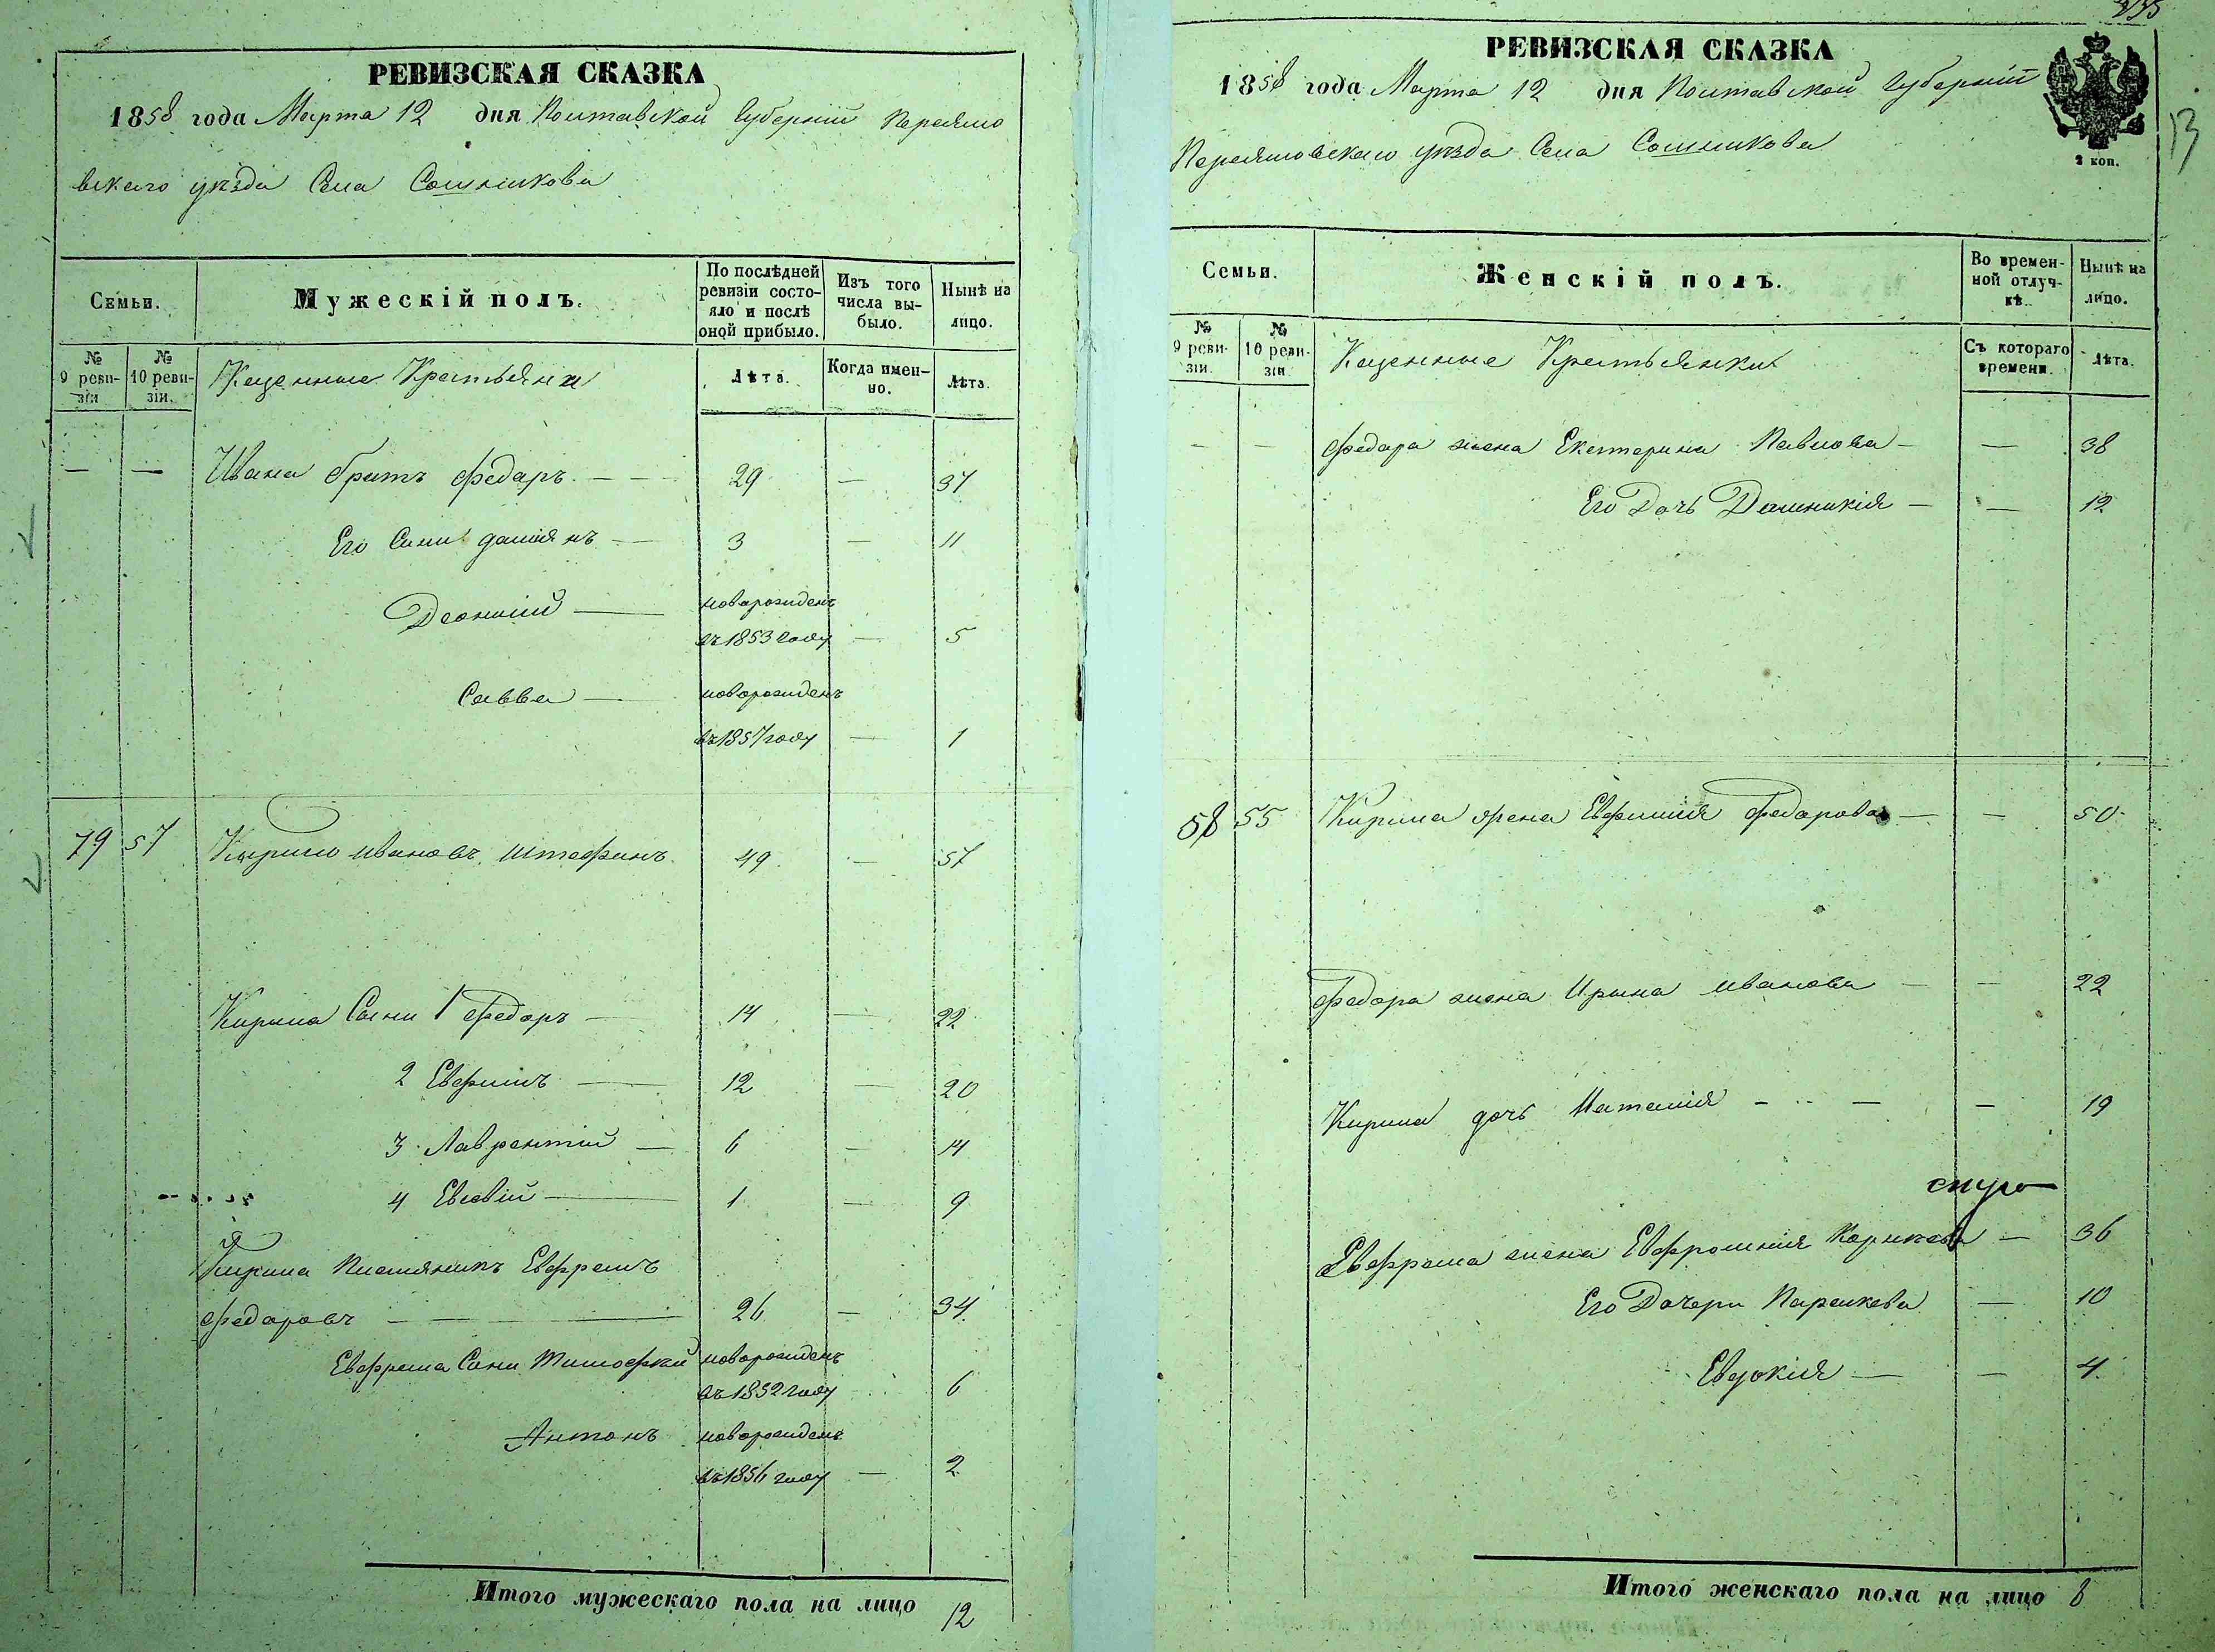 РЕВИЗСКАЯ СКАЗКА
1858 года Марта 12 дня Полтавской Губерніи Переясло
вскаго уѣзда Села Сошникова
Семьи.
Мужескій полъ.
По послѣдней ревизіи состояло и послѣ оной прибыло.
Изъ того числа выбыло.
Нынѣ на лицо.
№ 9 ревизіи
№ 10 ревизіи.
Казенные Крестьяни
Лѣта.
Когда именно.
Лѣта.
— — Ивана братъ Федаръ — — 29 — 37
Его Сини Даміянъ — 3 — 11
Леонтій — новарожденъ
въ 1853 году — 5
Савва — новорожденъ
въ 1857 году — 1
79 57 Кирило Ивановъ Штефанъ 49 — 57
Кирила Сини 1 Федоръ — 14 — 22
2 Евфимъ — 12 — 20
3 Лаврентій — 6 — 14
4 Евсевій — 1 — 9
Кирила Племяникъ Евфремъ
Федоровъ — — — 26 — 34
Евфрема Сини Тимофей новорожденъ
въ 1852 году 6
Антонъ новорожденъ
въ 1856 году — 2
Итого мужескаго пола на лицо 12
РЕВИЗСКАЯ СКАЗКА
1858 года Марта 12 дня Полтавской Губерніи
Переясловскаго уѣзда Села Сошникова
2 коп.
13
Семьи.
Женскій полъ.
Во временной отлучкѣ.
Нынѣ на лицо.
№ 9 ревизіи.
№ 10 ревизіи.
Казенные Крестьянки
Съ котораго времени.
Лѣта.
— — Федара жена Екатерина Павлова — — 38
Его Дочь Домникія — — 12
58 55 Кирила жена Евфимія Федарова — — 50
Федора жена Ирина Иванова — — 22
Кирила дочь Наталія — — — 19
Евфрема жена Евфросинія — 36
Его Дочери Параскева — 10
Евдокія — — 4
Итого женскаго пола на лицо 8